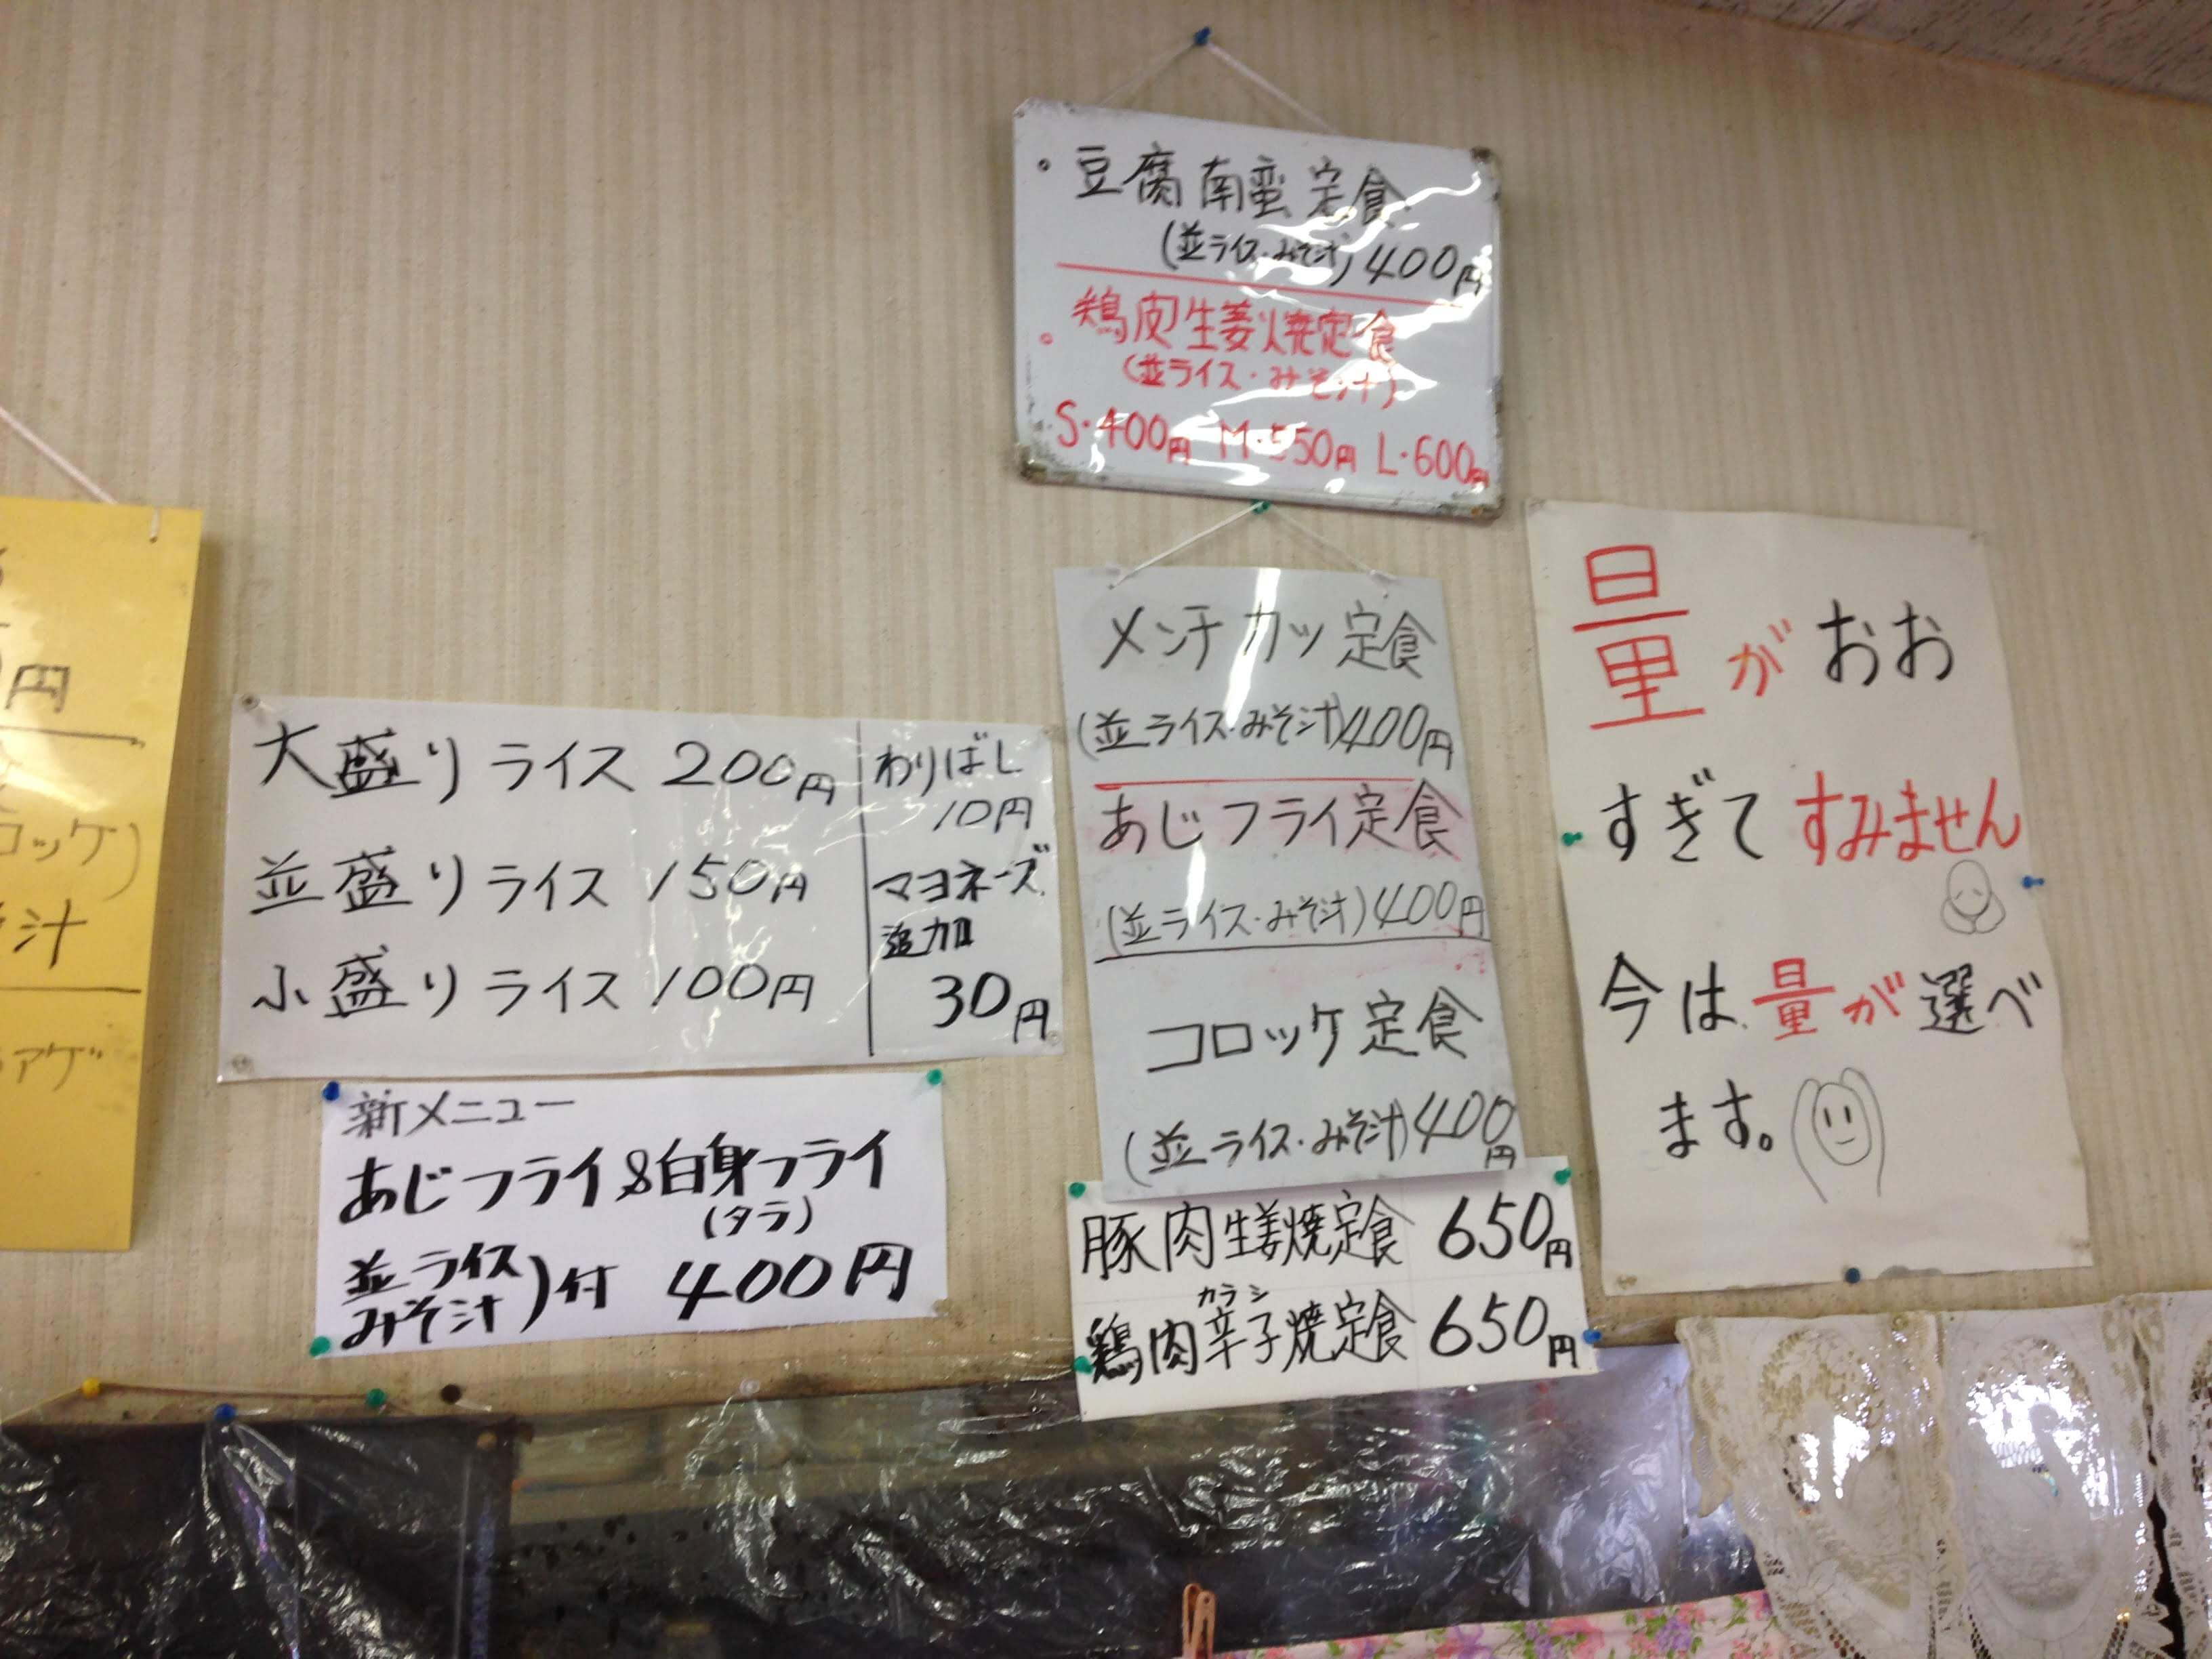 ・豆腐南蛮定食
(並ライス・みそ汁)400円
・鶏皮生姜焼定食
(並ライス・みそ汁)
S・400円 M・550円 L・600円
円
コロッケ)
汁
アゲ
大盛りライス 200円
並盛りライス 150円
小盛りライス 100円
わりばし
10円
マヨネーズ
追加
30円
新メニュー
あじフライ&白身フライ
(タラ)
並ライス
みそ汁)付 400円
メンチカツ定食
(並ライス・みそ汁)400円
あじフライ定食
(並ライス・みそ汁)400円
コロッケ定食
(並ライス・みそ汁)400円
豚肉生姜焼定食 650円
カラシ
鶏肉辛子焼定食 650円
量がおお
すぎてすみません
今は量が選べ
ます。